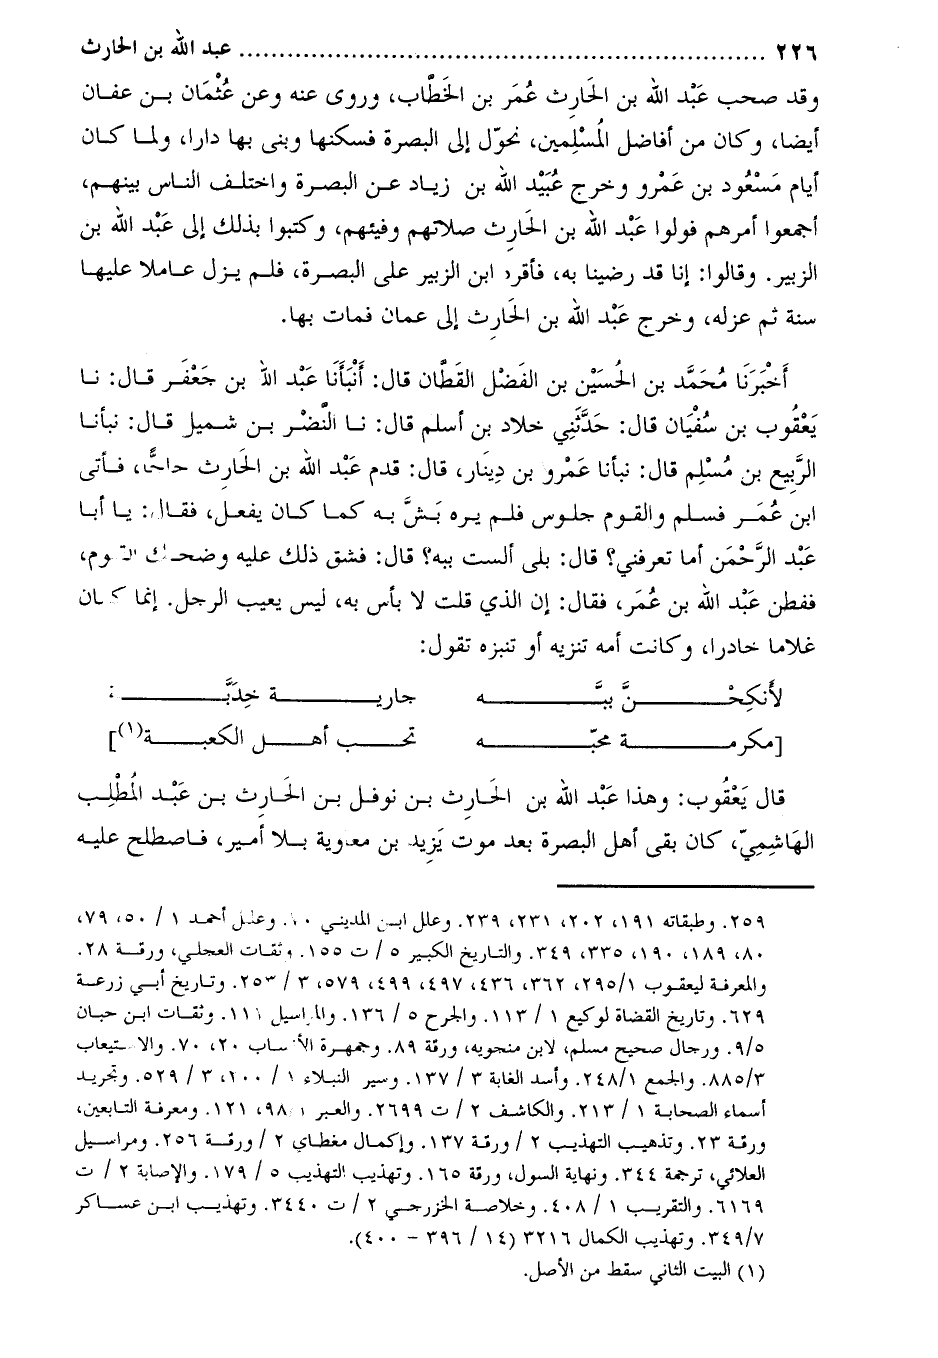 ٢٢٦ ........................................................ عبد الله بن الحارث
وقد صحب عَبْد الله بن الحَارِث عُمَر بن الخَطَّاب، وروى عنه وعن عُثْمَان بن عفان
أيضا، وكان من أفاضل المُسْلِمين، تحوّل إلى البصرة فسكنها وبنى بها دارا، ولما كان
أيام مَسْعُود بن عَمْرو وخرج عُبَيْد الله بن زياد عن البصرة واختلف الناس بينهم،
أجمعوا أمرهم فولوا عَبْد الله بن الحَارِث صلاتهم وفيئهم، وكتبوا بذلك إلى عَبْد الله بن
الزبير. وقالوا: إنا قد رضينا به، فأقره ابن الزبير على البصرة، فلم يزل عاملا عليها
سنة ثم عزله، وخرج عَبْد الله بن الحَارِث إلى عمان فمات بها.
أَخْبَرَنَا مُحَمَّد بن الحُسَيْن بن الفَضْل القَطَّان قال: أَنْبَأَنَا عَبْد الله بن جَعْفَر قال: نا
يَعْقُوب بن سُفْيَان قال: حَدَّثَنِي خلاد بن أسلم قال: نا النَّضْر بن شميل قال: نبأنا
الرَّبِيع بن مُسْلِم قال: نبأنا عَمْرو بن دِينَار، قال: قدم عَبْد الله بن الحَارِث حاجًّا، فأتى
ابن عُمَر فسلم والقوم جلوس فلم يره بَشَّ به كما كان يفعل، فقال: يا أبا
عَبْد الرَّحْمَن أما تعرفني؟ قال: بلى ألست ببه؟ قال: فشق ذلك عليه وضحك القوم،
ففطن عَبْد الله بن عُمَر، فقال: إن الذي قلت لا بأس به، ليس يعيب الرجل. إنما كان
غلاما خادرا، وكانت أمه تنزيه أو تنبزه تقول:
لأَنكِحْـــــنَّ ببَّـــــه جاريـــــة خِدَبَّـــــة
[مكرمـــــة محبّـــــه تحـــب أهـــل الكعبـــة(١)]
قال يَعْقُوب: وهذا عَبْد الله بن الحَارِث بن نوفل بن الحَارِث بن عَبْد المُطَّلِب
الهَاشِمِيّ، كان بقى أهل البصرة بعد موت يَزِيد بن معاوية بلا أمير، فاصطلح عليه
٢٥٩. وطبقاته ١٩١، ٢٠٢، ٢٣١، ٢٣٩. وعلل ابن المديني ٦٠. وعلل أحمد ١ / ٥٠، ٧٩،
٨٠، ١٨٩، ١٩٠، ٣٣٥، ٣٤٩. والتاريخ الكبير ٥ / ت ١٥٥. وثقات العجلي، ورقة ٢٨.
والمعرفة ليعقوب ٢٩٥/١، ٣٦٢، ٤٣٦، ٤٩٧، ٤٩٩، ٥٧٩، ٣ / ٢٥٣. وتاريخ أبي زرعة
٦٢٩. وتاريخ القضاة لوكيع ١ / ١١٣. والجرح ٥ / ١٣٦. والمراسيل ١١١. وثقات ابن حبان
٩/٥. ورجال صحيح مسلم، لابن منجويه، ورقة ٨٩. وجمهرة الأنساب ٢٠، ٧٠. والاستيعاب
٨٨٥/٣. والجمع ٢٤٨/١. وأسد الغابة ٣ / ١٣٧. وسير النبلاء ١ / ٢٠٠، ٣ / ٥٢٩. وتجريد
أسماء الصحابة ١ / ٢١٣. والكاشف ٢ / ت ٢٦٩٩. والعبر ١/ ٩٨، ١٢١. ومعرفة التابعين،
ورقة ٢٣. وتذهيب التهذيب ٢ / ورقة ١٣٧. وإكمال مغطاي ٢ / ورقة ٢٥٦. ومراسيل
العلائي، ترجمة ٣٤٤. ونهاية السول، ورقة ١٦٥. وتهذيب التهذيب ٥ / ١٧٩. والإصابة ٢ / ت
٦١٦٩. والتقريب ١ / ٤٠٨. وخلاصة الخزرجي ٢ / ت ٣٤٤٠. وتهذيب ابن عساكر
٣٤٩/٧. وتهذيب الكمال ٣٢١٦ (١٤ / ٣٩٦ - ٤٠٠).
(١) البيت الثاني سقط من الأصل.